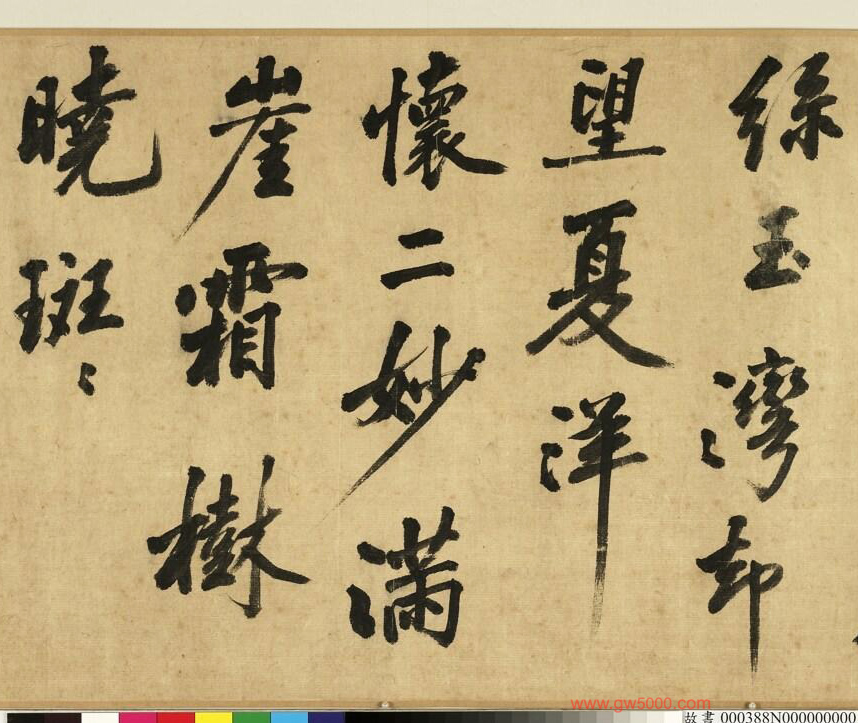 絲玉灣却
望夏洋
懷二妙滿
崖霜樹
曉斑〻
www.gw5000.com
故書 000388N000000000